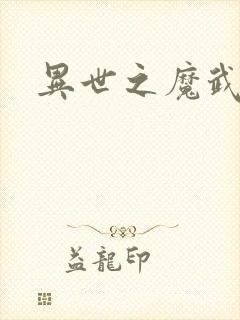 異世之魔武
益龍印